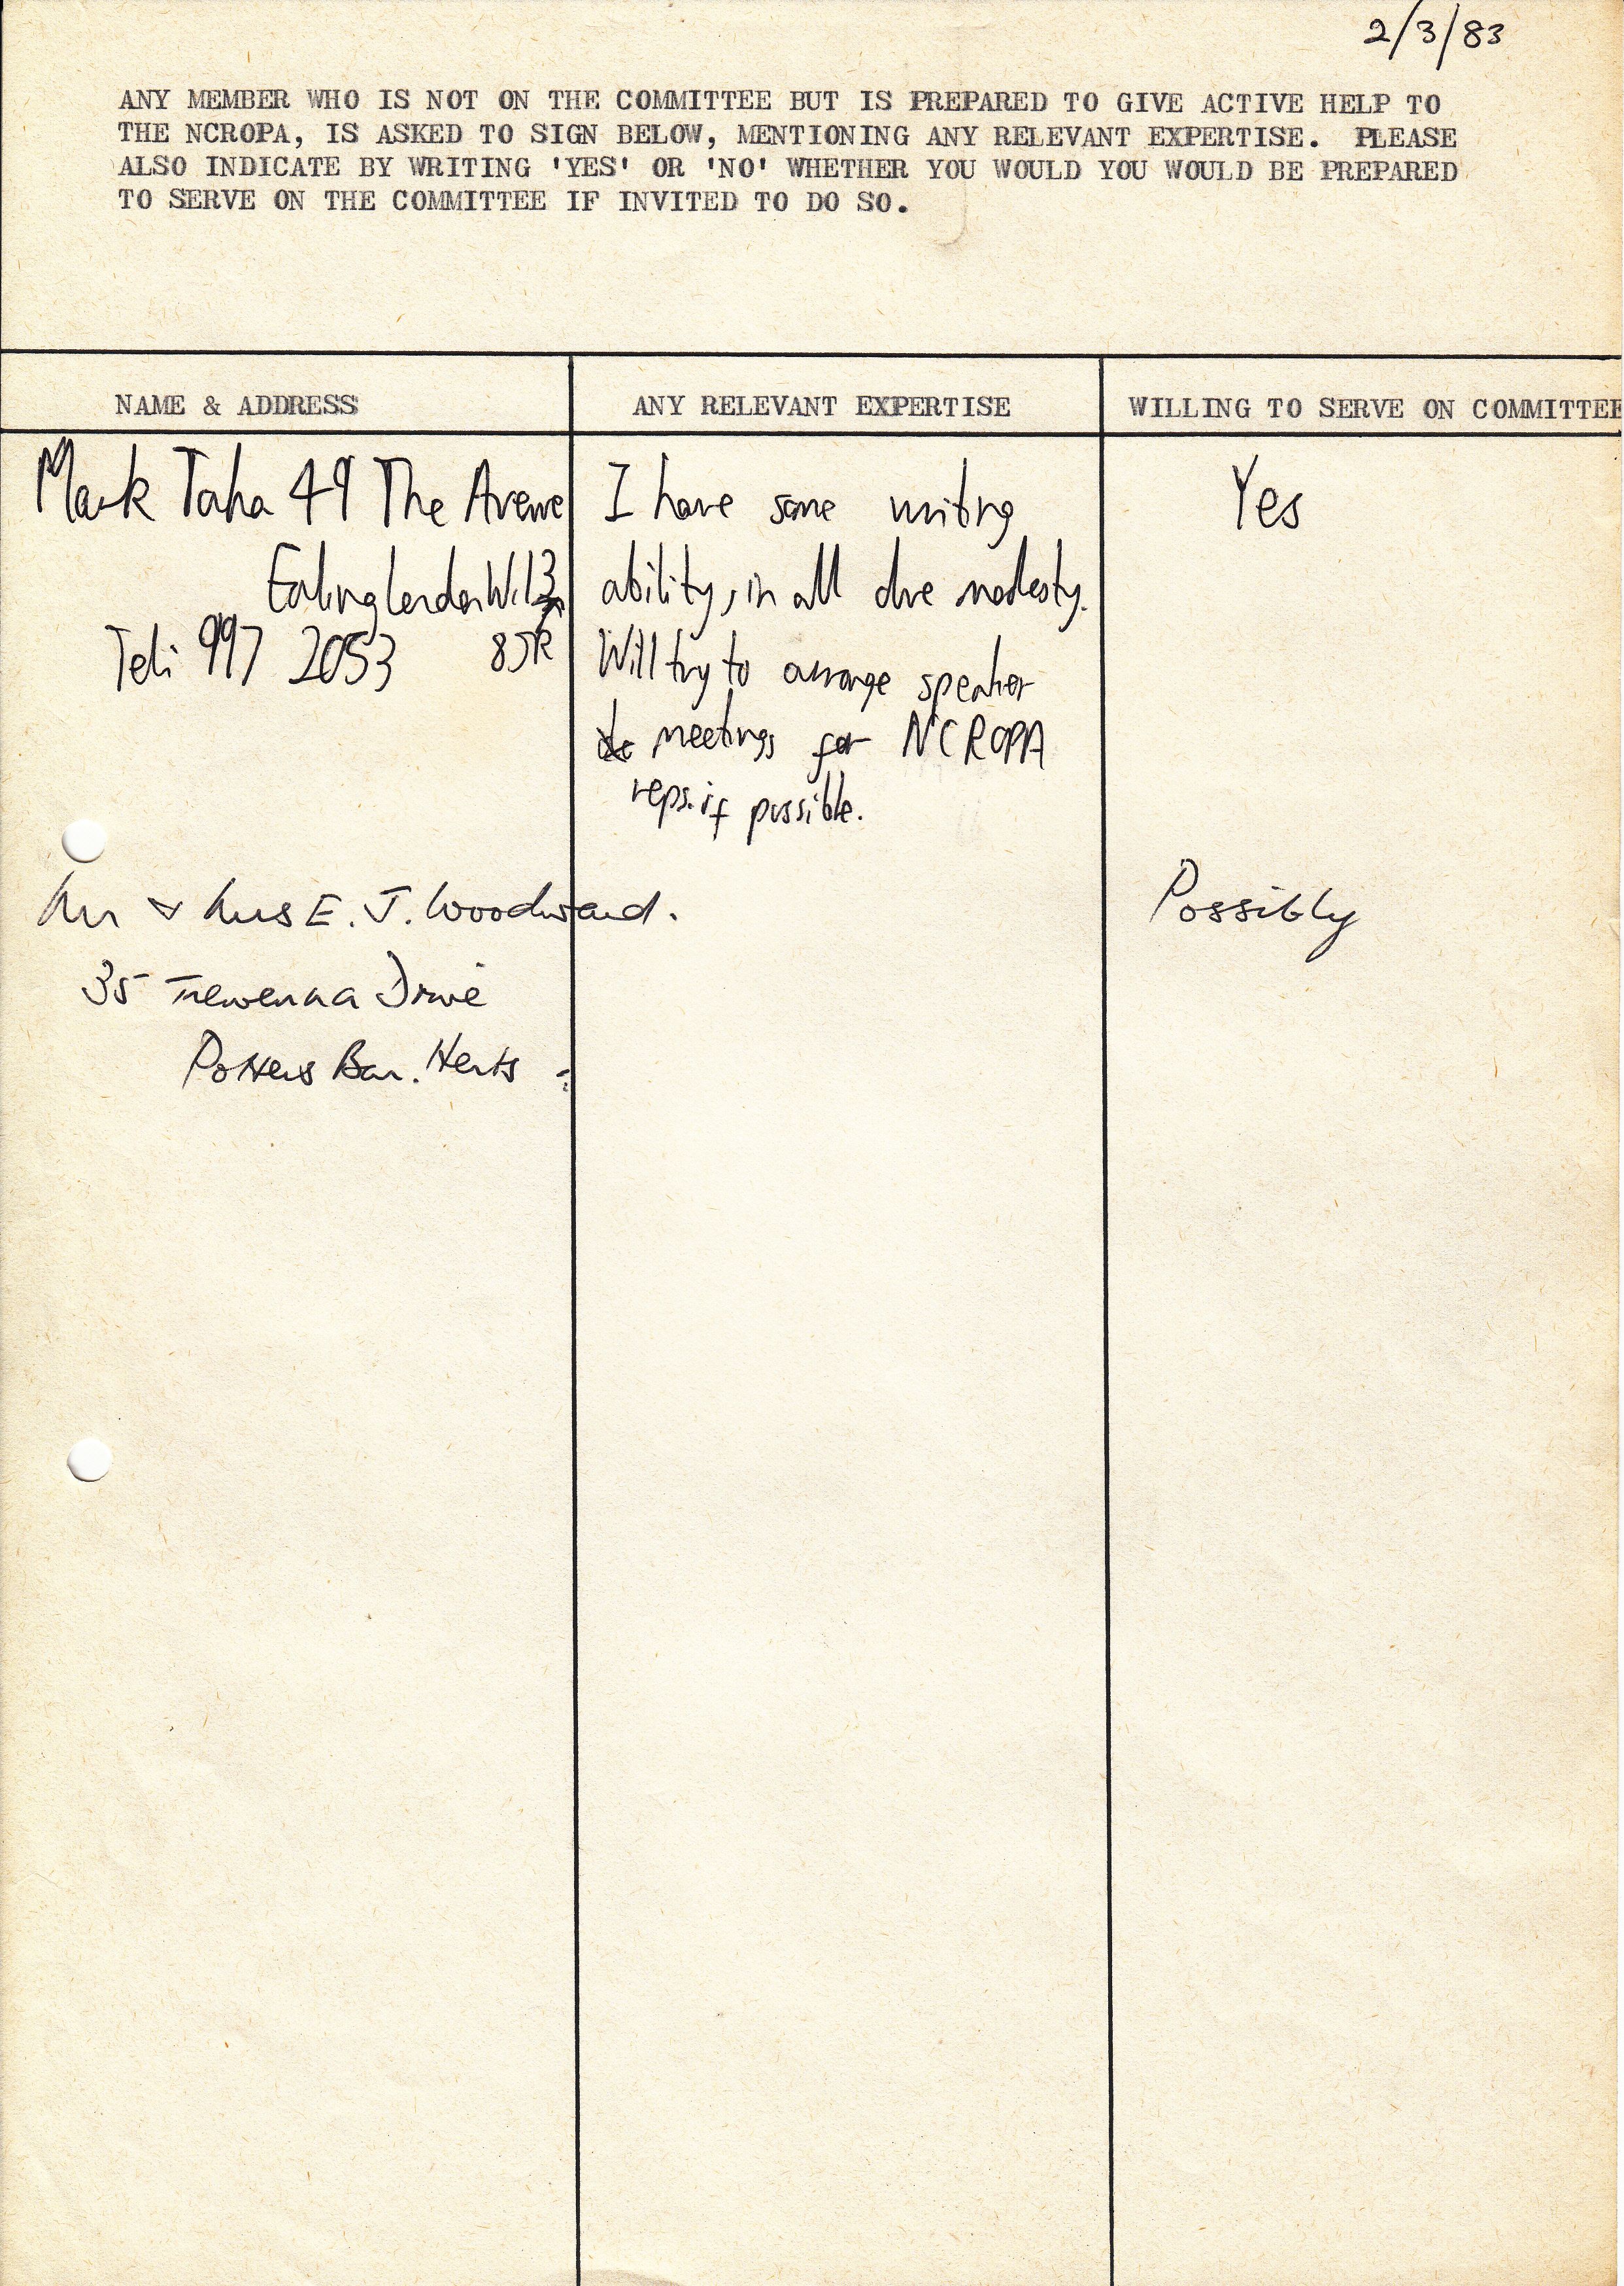 2/3/83
ANY MEMBER WHO IS NOT ON THE COMMITTEE BUT IS PREPARED TO GIVE ACTIVE HELP TO
THE NCROPA, IS ASKED TO SIGN BELOW, MENTIONING ANY RELEVANT EXPERTISE. PLEASE
ALSO INDICATE BY WRITING 'YES' OR 'NO' WHETHER YOU WOULD YOU WOULD BE PREPARED
TO SERVE ON THE COMMITTEE IF INVITED TO DO SO.
NAME & ADDRESS ANY RELEVANT EXPERTISE WILLING TO SERVE ON COMMITTEE
Mark Taha 49 The Avenue
Ealing London W.13
8JR
Tel: 997 2053
I have some writing
ability, in all due modesty.
Will try to arrange speaker
meetings for NCROPA
reps. if possible.
Yes
Mr & Mrs E. J. Woodward.
35 Trewenna Drive
Potters Bar. Herts
Possibly